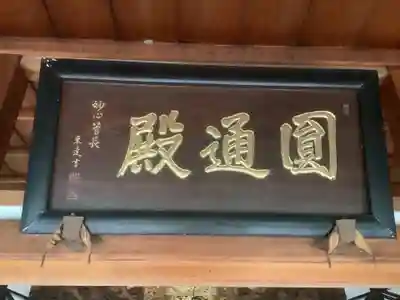 圓通殿
妙心管長